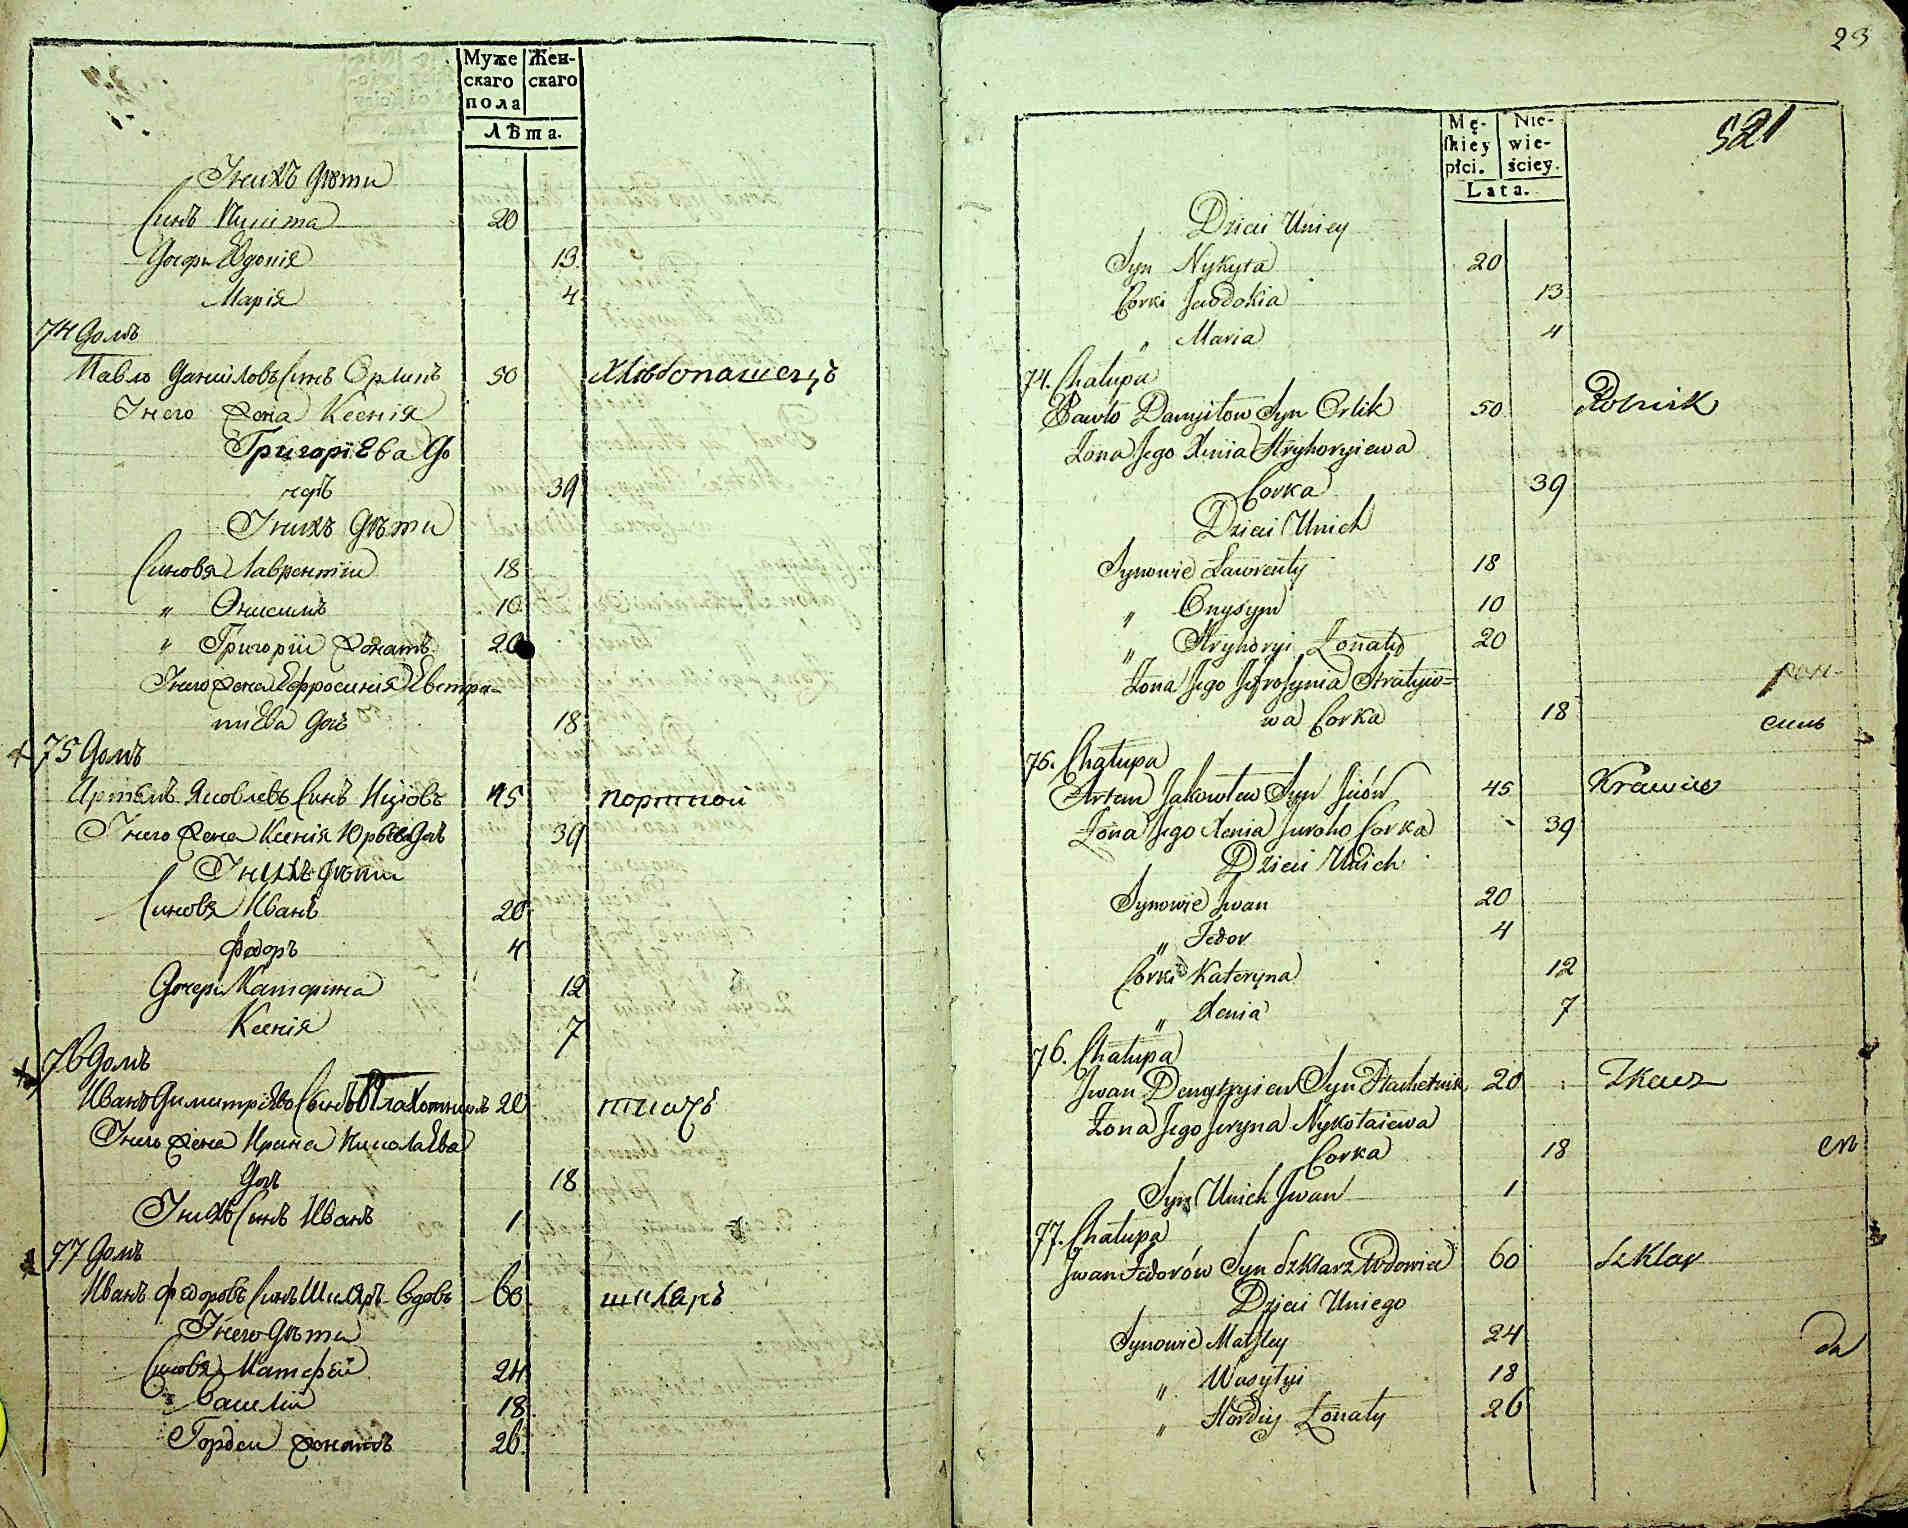 Муже Жен-
скаго скаго
пола
Лѣта.
У нихъ Дѣти
Синъ Никита 20
Дочери Евдокія 13
Марія 4
74 Домъ
Павло Даниловъ Синъ Орликъ 50 Хлѣбопашецъ
У него жена Ксенія
Григоріева До
черь 39
У нихъ Дѣти
Синовя Лаврентіи 18
" Онисимъ 10
" Григоріи жонатъ 20
У него жена Ефросинія Евстра-
тиева Дочь 18
75 Домъ
Артемъ Яковлевъ Синъ 45 портной
У него жена Ксенія Юрьева Дочь 39
У нихъ Дѣти
Синовя Иванъ 20
Федоръ 4
Дочери Катерина 12
Ксенія 7
76 Домъ
Иванъ Димитріевъ Синъ 20 ткачъ
У него жена Ирина Николаева
Дочь 18
У нихъ Синъ Иванъ 1
77 Домъ
Иванъ Федоровъ Синъ Шкляръ вдовъ 60 шкляръ
У него Дѣти
Синовя Матфей 24
" Василіи 18
Гордеи жонатъ 26
23
521
Mę- Nie-
ſkiey wie-
płci. ściey.
Lata.
Dzieci Uniey
Syn Nykyta 20
Corki Jewdokia 13
" Maria 4
74. Chałupa
Pawło Danyłow Syn Orlik 50 Rolnik
Żona Jego Xenia Hryhoryiewa
Corka 39
Dzieci Unich
Synowie Ławrenty 18
" Onysym 10
" Hryhoryi Żonaty 20
Żona Jego Jefrosynia Stratyiw=
wa Corka 18
75. Chałupa
Artem Jakowlew Syn 45 Krawiec
Żona Jego Xenia Juroho Corka 39
Dzieci Unich
Synowie Jwan 20
" Fedor 4
Corki Kateryna 12
" Xenia 7
76. Chałupa
Jwan Demytryiew Syn Płachotnik 20 Tkacz
Żona Jego Jryna Nykołaiewa
Corka 18
Syn Unich Jwan 1
77. Chałupa
Jwan Fedorów Syn Szklarz Wdowiec 60 Szklar
Dzieci Uniego
Synowie Matfey 24
" Wasylyi 18
" Hordiy Żonaty 26